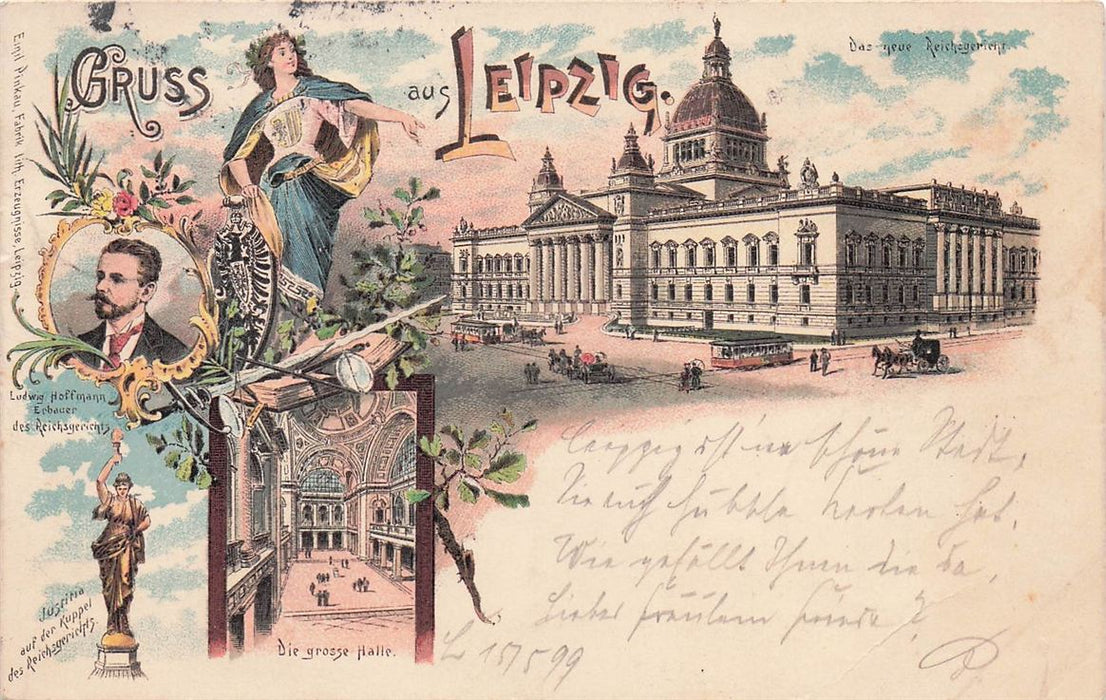 GRUSS
aus LEIPZIG.
Das neue Reichsgericht.
Emil Pinkau, Fabrik lith. Erzeugnisse, Leipzig.
Ludwig Hoffmann
Erbauer
des Reichsgerichts
Justitia
auf der Kuppel
des Reichsgerichts.
Die grosse Halle.
Leipzig ist ne schöne Stadt,
Die auch hübsche Karten hat.
Wie gefällt Ihnen die da,
Liebes Fräulein
L 15/5 99